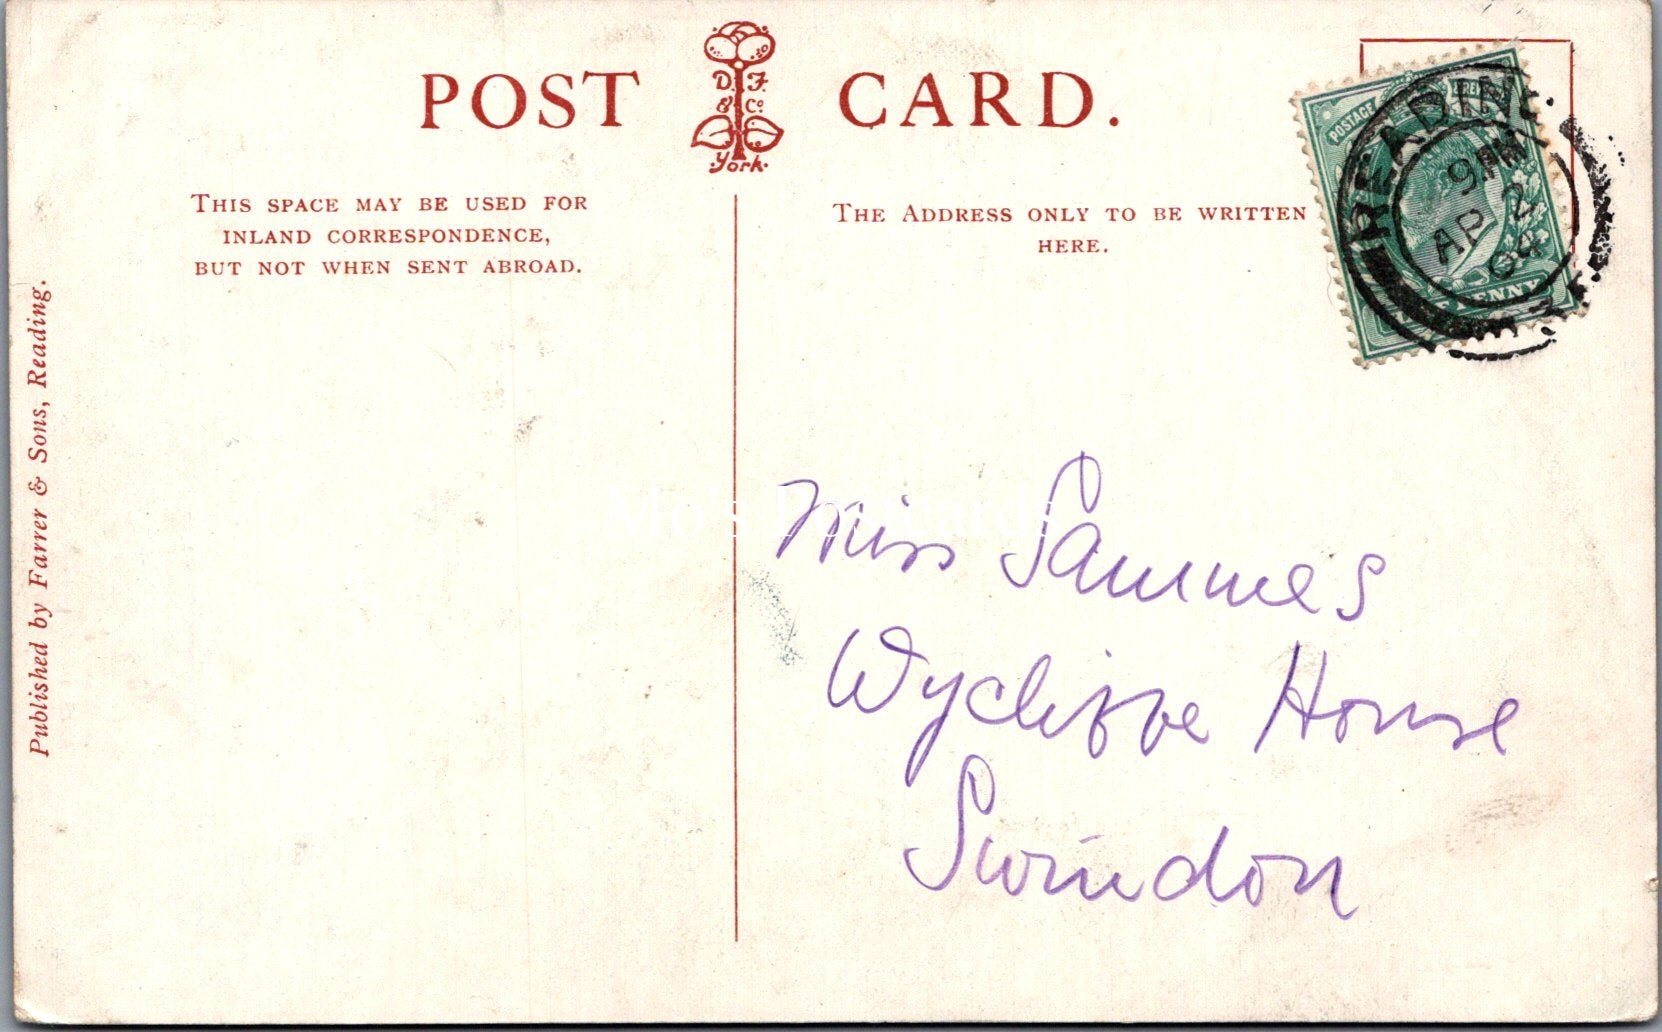 POST CARD.
D. F.
& Co
York.
THIS SPACE MAY BE USED FOR
INLAND CORRESPONDENCE,
BUT NOT WHEN SENT ABROAD.
THE ADDRESS ONLY TO BE WRITTEN
HERE.
POSTAGE
PENNY
READING
9 PM
AP 2
04
Published by Farrer & Sons, Reading.
Mo's Postcards
Miss Sammes
Wycliffe House
Swindon